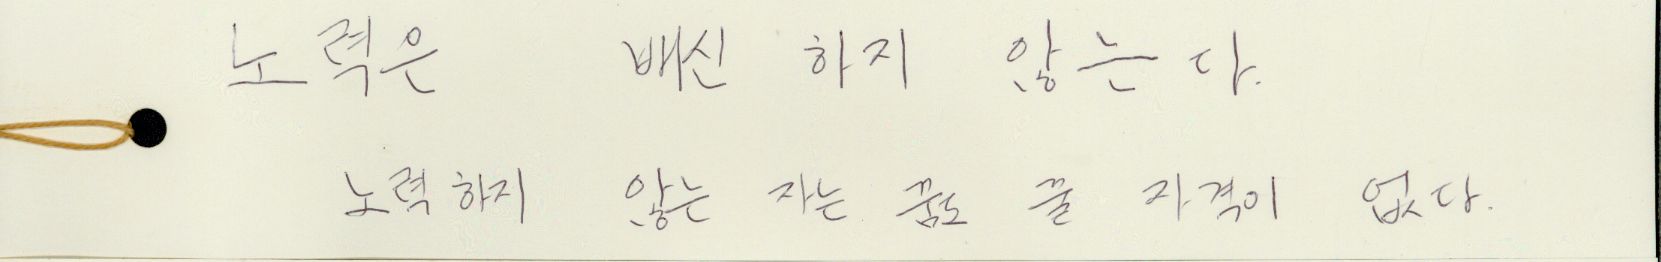 노력은 배신 하지 않는다.
노력하지 않는 자는 꿈도 꿀 자격이 없다.